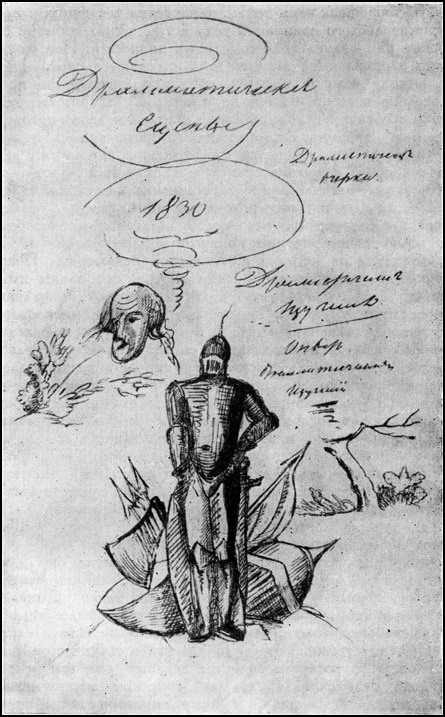 Драматические
сцены
1830
Драматические
очерки.
Драматические
изучения
Опыт
драматических
изучений